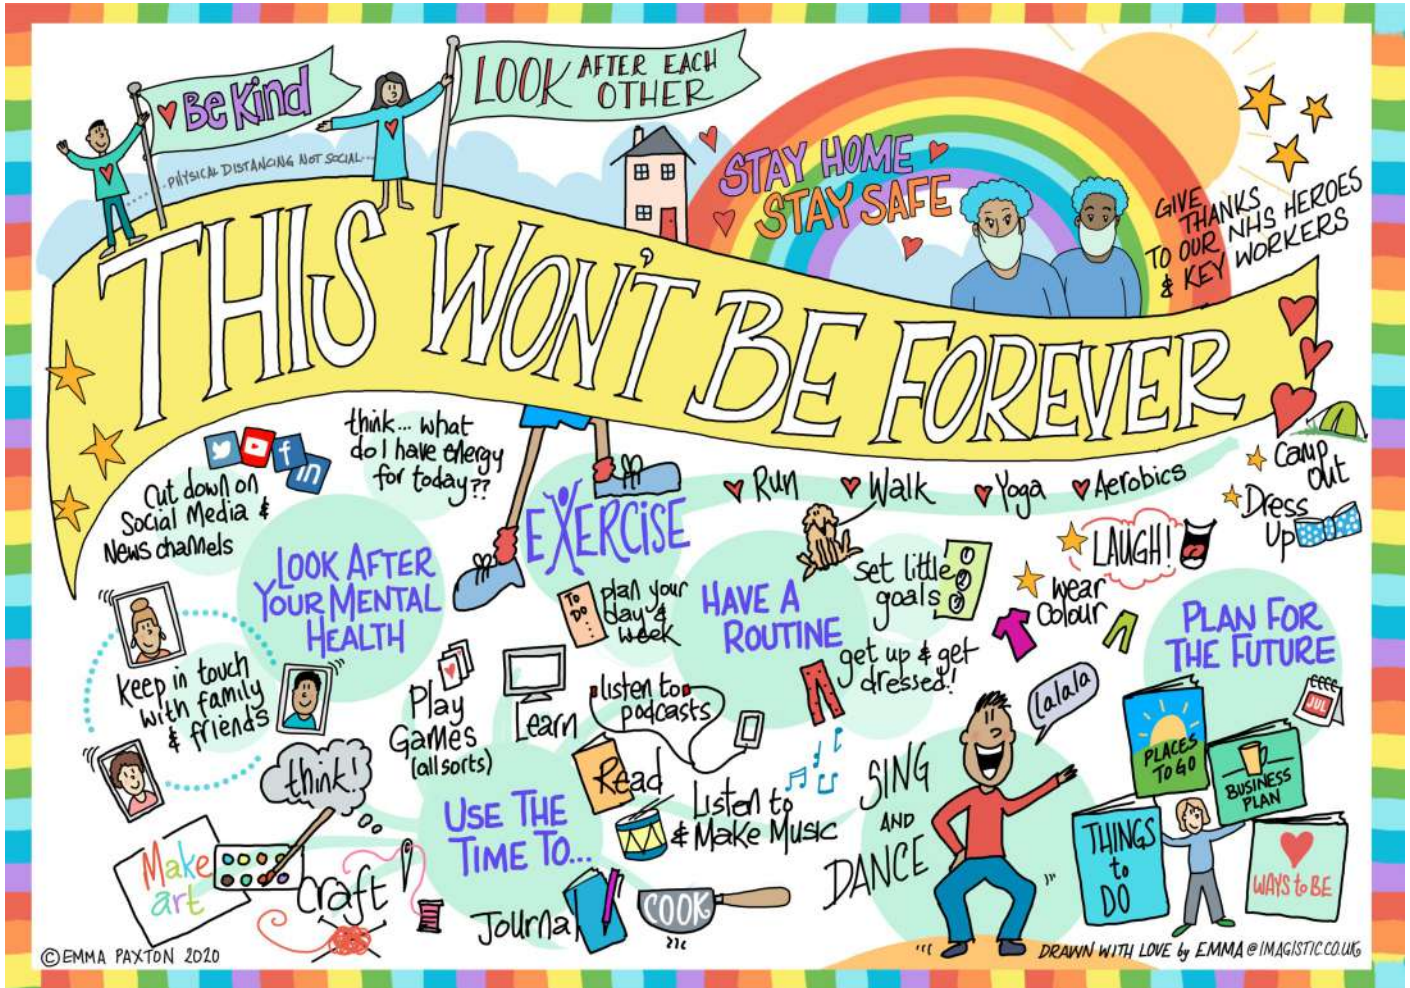 Be Kind
LOOK AFTER EACH
OTHER
.....PHYSICAL DISTANCING NOT SOCIAL...
STAY HOME
STAY SAFE
GIVE
THANKS
TO OUR NHS HEROES
& KEY WORKERS
THIS WON'T BE FOREVER
Cut down on
Social Media &
News channels
f
in
think... what
do I have energy
for today??
LOOK AFTER
YOUR MENTAL
HEALTH
keep in touch
with family
& friends
EXERCISE
Run
Walk
Yoga
Aerobics
Camp
Out
Dress
Up
LAUGH!
wear
Colour
TO
DO...
plan your
day &
week
HAVE A
ROUTINE
set little
goals
1
2
3
get up & get
dressed!
PLAN FOR
THE FUTURE
JUL
PLACES
TO GO
BUSINESS
PLAN
THINGS
to
DO
WAYS to BE
lalala
SING
AND
DANCE
Play
Games
(all sorts)
Learn
listen to
podcasts
Read
Listen to
& Make Music
USE THE
TIME TO...
think!
Make
art
Craft
Journal
COOK
© EMMA PAXTON 2020
DRAWN WITH LOVE by EMMA@IMAGISTIC.CO.UK